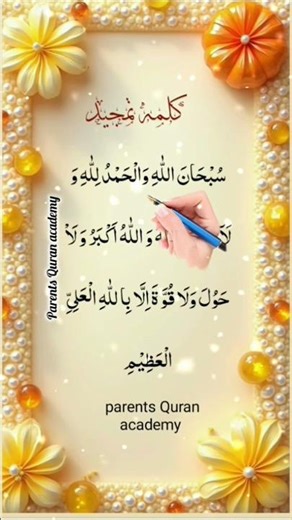 كلمہ تمجید
سُبْحَانَ اللهِ وَالْحَمْدُ لِلّٰهِ وَ
لَا وَاللهُ اَكْبَرُ وَلَا
حَوْلَ وَلَا قُوَّةَ اِلَّا بِاللهِ الْعَلِىِّ
الْعَظِيْمِ
parents Quran
academy
Parents Quran academy